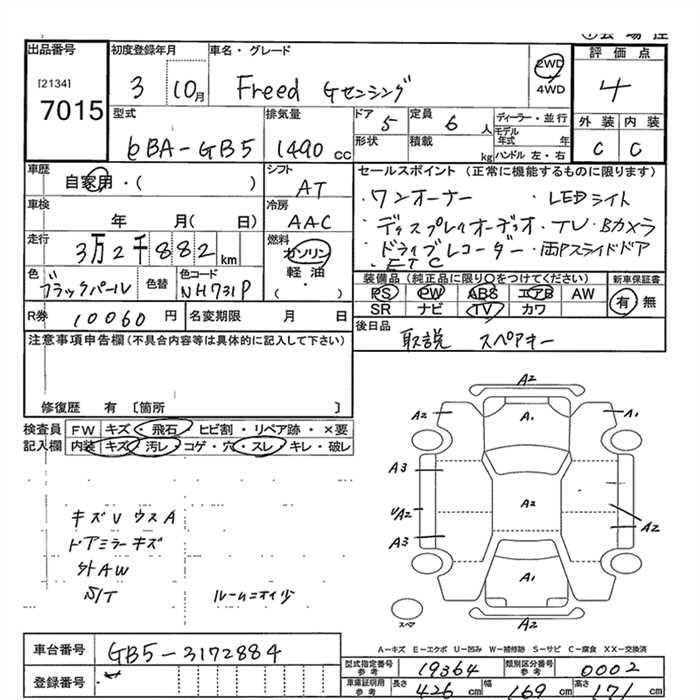 出品番号
[2134]
7015
初度登録年月
3 10月
車名・グレード
Freed Gセンシング
2WD
4WD
評価点
4
外装 内装
C C
型式
6BA-GB5
排気量
1490 cc
ドア
5
形状
定員
6 人
積載
kg
ディーラー・並行
モデル年式 年
ハンドル 左・右
車歴
自家用・( )
シフト
AT
車検
年 月( 日)
冷房
AAC
走行
3万2千882 km
燃料
ガソリン
軽油・
( )
色
ブラックパール
色替
色コード
NH731P
R券
10060 円
名変期限 月 日
セールスポイント (正常に機能するものに限ります)
・ワンオーナー ・LEDライト
・ディスプレイオーディオ・TV・Bカメラ
・ドライブレコーダー・両Pスライドドア
・ETC
装備品 (純正品に限り○をつけてください)
新車保証書
PS PW ABS エアB AW
SR ナビ TV カワ
有 無
後日品
取説 スペアキー
注意事項申告欄(不具合内容等は具体的に記入して下さい)
修復歴 有〔箇所 〕
検査員記入欄
FW キズ・飛石・ヒビ割・リペア跡・×要
内装 キズ・汚レ・コゲ・穴・スレ・キレ・破レ
キズU ウスA
ドアミラーキズ
外AW
S/T
ルームニオイ
A2
A2 A1 A1
A3
UA2 A2 A2
A3
A1
A2
スペア
A-キズ E-エクボ U-凹み W-補修跡 S-サビ C-腐食 XX-交換済
車台番号
GB5-3172884
登録番号
型式指定番号 参考
19364
類別区分番号 参考
0002
車庫証明用 参考
長さ 426 cm
幅 169 cm
高さ 171 cm